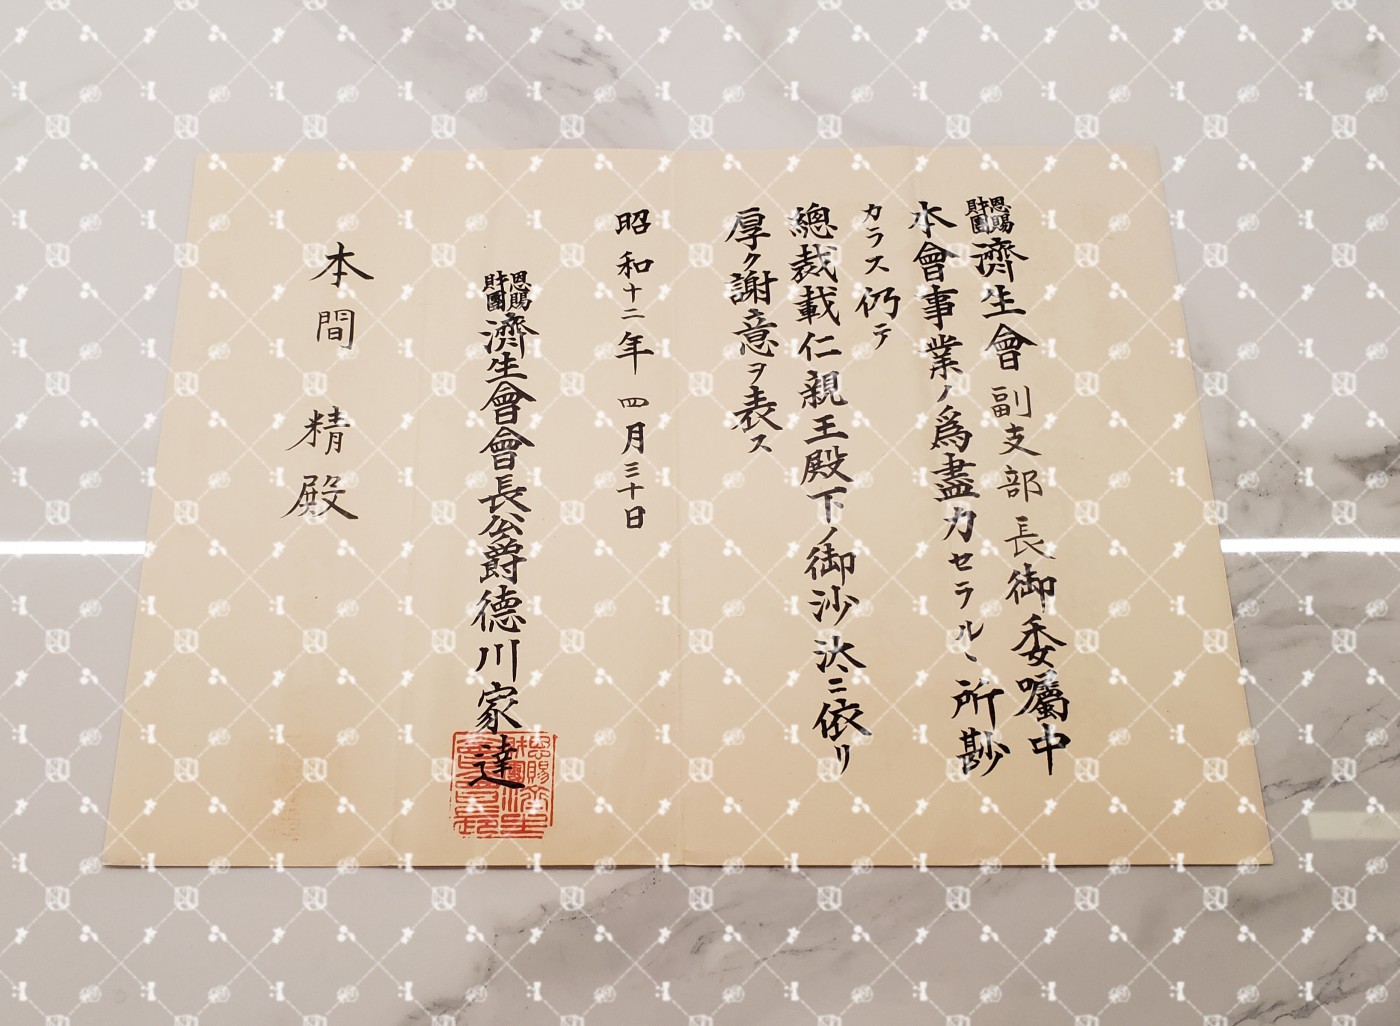 恩賜財團濟生會副支部長御委嘱中
本會事業ノ爲盡力セラルヽ所尠
カラス仍テ
總裁載仁親王殿下ノ御沙汰ニ依リ
厚ク謝意ヲ表ス
昭和十二年四月三十日
恩賜財團濟生會會長公爵德川家達
本間精殿